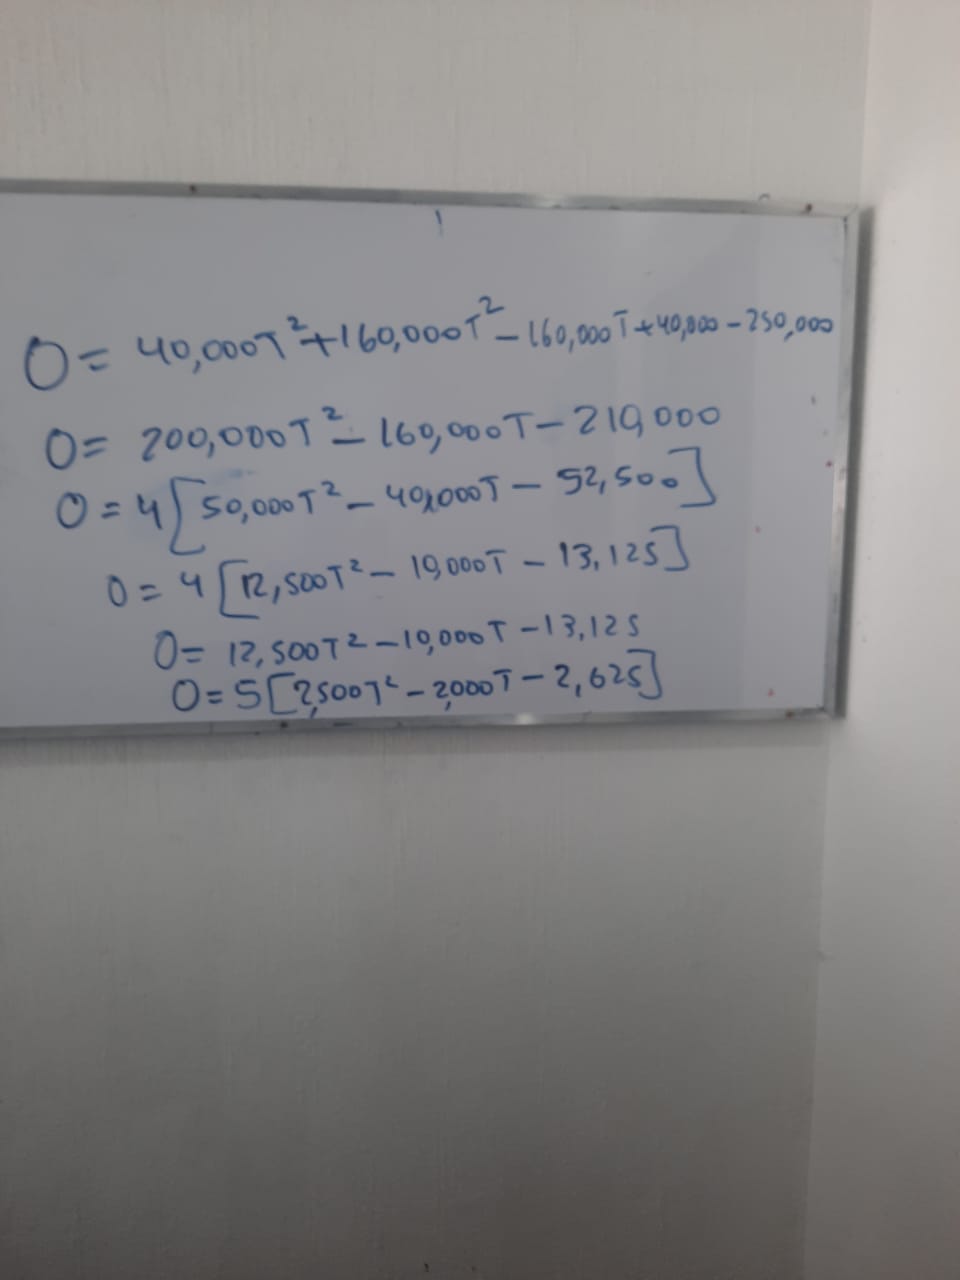 0= 40,000T²+160,000T²-160,000T+40,000-250,000
0= 200,000T²-160,000T-210,000
0=4[50,000T²-40,000T-52,500]
0=4[12,500T²-10,000T-13,125]
0=12,500T²-10,000T-13,125
0=5[2,500T²-2,000T-2,625]